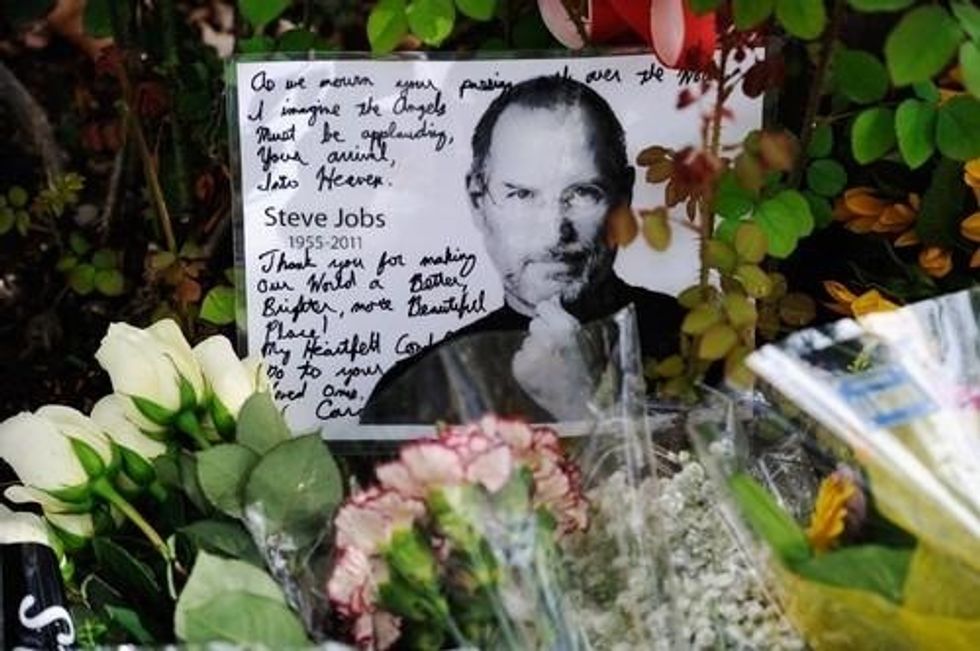 As we mourn your passing over the
I imagine the Angels
Must be applauding,
Your arrival,
Into Heaven.
Steve Jobs
1955-2011
Thank you for making
Our World a Better,
Brighter, more Beautiful
Place!
My Heartfelt
Go to your